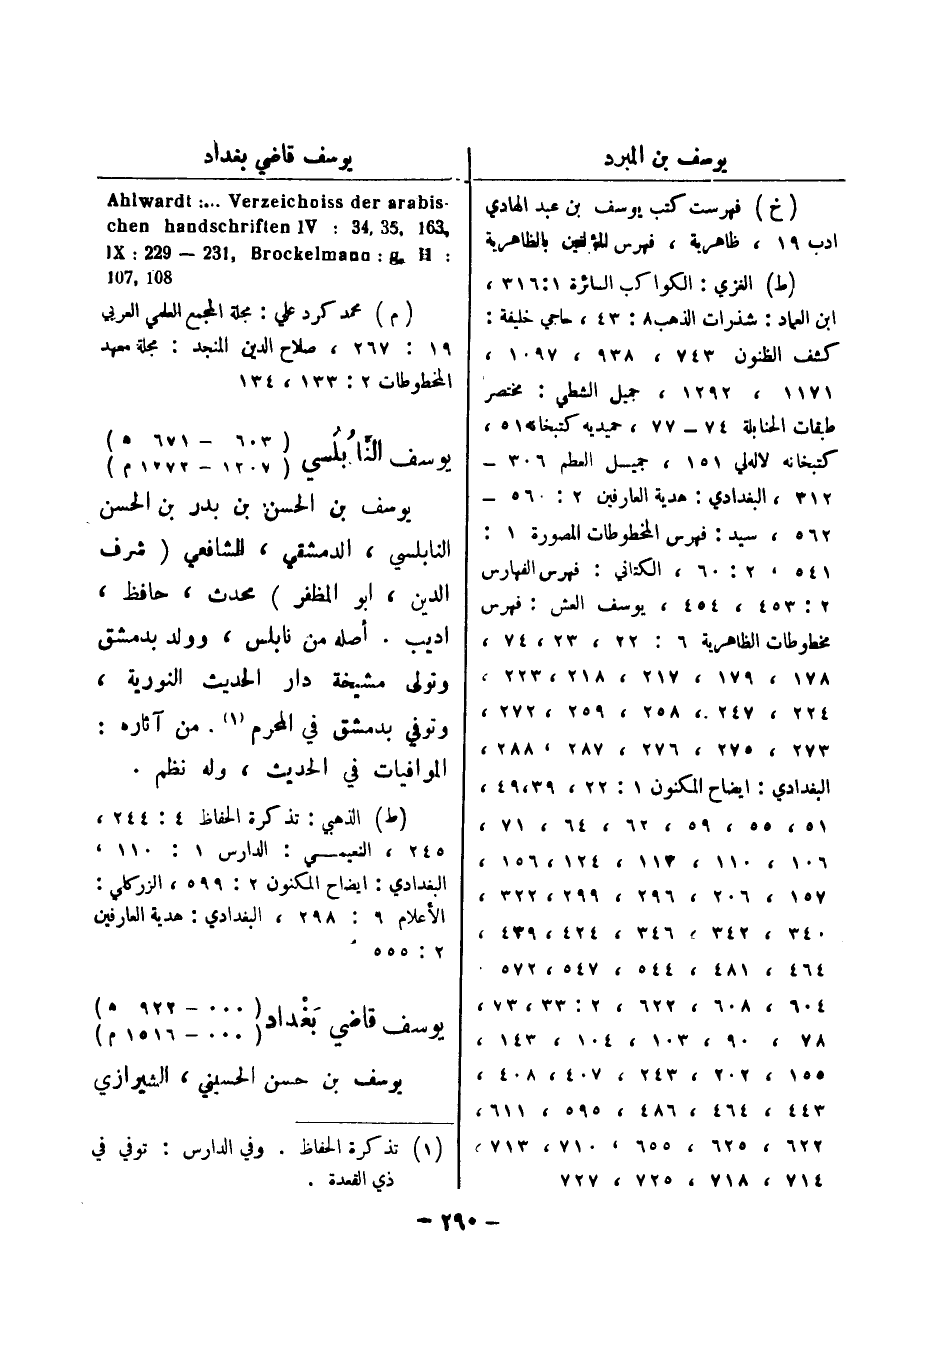 يوسف بن المبرد
(خ) فهرست كتب يوسف بن عبد الهادي
ادب ١٩ ، ظاهرية ، فهرس المؤلفين بالظاهرية
(ط) الغزي : الكواكب السائرة ١:٣١٦ ،
ابن العماد : شذرات الذهب ٨ : ٤٣ ، حاجي خليفة :
كشف الظنون ٧٤٣ ، ٩٣٨ ، ١٠٩٧ ،
١١٧١ ، ١٢٩٢ ، جميل الشطي : مختصر
طبقات الحنابلة ٧٤ – ٧٧ ، حميديه كتبخانه ٥١ ،
كتبخانه لاله‌لي ١٥١ ، جميـل العظم ٣٠٦ –
٣١٢ ، البغدادي : هدية العارفين ٢ : ٥٦٠ –
٥٦٢ ، سيد : فهرس المخطوطات المصورة ١ :
٥٤١ ، ٢ : ٦٠ ، الكتاني : فهرس الفهارس
٢ : ٤٥٣ ، ٤٥٤ ، يوسف العش : فهرس
مخطوطات الظاهرية ٦ : ٢٢ ، ٢٣ ، ٧٤ ،
١٧٨ ، ١٧٩ ، ٢١٧ ، ٢١٨ ، ٢٢٣ ،
٢٢٤ ، ٢٤٧ ، ٢٥٨ ، ٢٥٩ ، ٢٧٢ ،
٢٧٣ ، ٢٧٥ ، ٢٧٦ ، ٢٨٧ ، ٢٨٨ ،
البغدادي : ايضاح المكنون ١ : ٢٢ ، ٣٩،٤٩ ،
٥١ ، ٥٥ ، ٥٩ ، ٦٢ ، ٦٤ ، ٧١ ،
١٠٦ ، ١١٠ ، ١١٣ ، ١٢٤ ، ١٥٦ ،
١٥٧ ، ٢٠٦ ، ٢٩٦ ، ٢٩٩ ، ٣٢٢ ،
٣٤٠ ، ٣٤٢ ، ٣٤٦ ، ٤٢٤ ، ٤٣٩ ،
٤٦٤ ، ٤٨١ ، ٥٤٤ ، ٥٤٧ ، ٥٧٢
٦٠٤ ، ٦٠٨ ، ٦٢٢ ، ٢ : ٣٣ ، ٧٣ ،
٧٨ ، ٩٠ ، ١٠٣ ، ١٠٤ ، ١٤٣ ،
١٥٥ ، ٢٠٢ ، ٢٤٣ ، ٤٠٧ ، ٤٠٨ ،
٤٤٣ ، ٤٦٤ ، ٤٨٦ ، ٥٩٥ ، ٦١١ ،
٦٢٢ ، ٦٢٥ ، ٦٥٥ ، ٧١٠ ، ٧١٣ ،
٧١٤ ، ٧١٨ ، ٧٢٥ ، ٧٢٧
يوسف قاضي بغداد
Ahlwardt :... Verzeichniss der arabis-
chen handschriften IV : 34, 35, 163,
IX : 229 — 231, Brockelmann : g, II :
107, 108
(م) محمد كرد علي : مجلة المجمع العلمي العربي
١٩ : ٢٦٧ ، صلاح الدين المنجد : مجلة معهد
المخطوطات ٢ : ١٣٣ ، ١٣٤
يوسف النَّابُلُسي (٦٠٣ – ٦٧١ ه)
(١٢٠٧ – ١٢٧٢ م)
يوسف بن الحسن بن بدر بن الحسن
النابلسي ، الدمشقي ، الشافعي ( شرف
الدين ، ابو المظفر ) محدث ، حافظ ،
اديب . أصله من نابلس ، وولد بدمشق
وتولى مشيخة دار الحديث النورية ،
وتوفي بدمشق في المحرم (١) . من آثاره :
الموافيات في الحديث ، وله نظم .
(ط) الذهبي : تذكرة الحفاظ ٤ : ٢٤٤ ،
٢٤٥ ، النعيمـــي : الدارس ١ : ١١٠ ،
البغدادي : ايضاح المكنون ٢ : ٥٩٩ ، الزركلي :
الأعلام ٩ : ٢٩٨ ، البغدادي : هدية العارفين
٢ : ٥٥٥
يوسف قاضي بَغْداد (٠٠٠ – ٩٢٢ ه)
(٠٠٠ – ١٥١٦ م)
يوسف بن حسن الحسيني ، الشيرازي
(١) تذكرة الحفاظ . وفي الدارس : توفي في
ذي القعدة .
– ٢٩٠ –